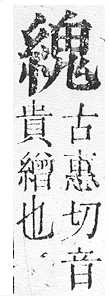 古惠切音
貴繒也